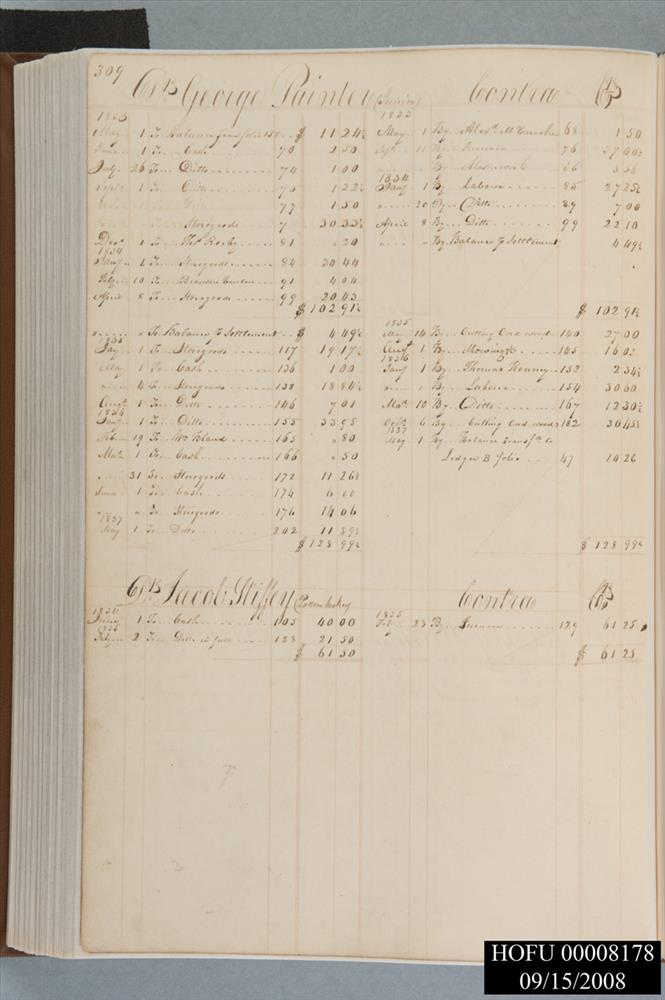 309
Dr George Painter (Junior) Contra Cr
1833
May 1 To Balance from folio 158 $ 11 24½
June 1 To Cash 70 2 50
July 26 To Ditto 74 1 00
1 To Ditto 75 1 22½
77 1 50
Storegoods 30 33½
Decr 1 To Thos Rosby 81 " 20
1834
Jany 1 To Storegoods 84 30 44
Feby 10 To 91 4 04
April 8 To Storegoods 99 20 43
$ 102 91½
" To Balance Settlement $ 4 49½
1835
Jany 1 To Storegoods 117 19 17½
May 1 To Cash 136 1 00
" 4 To Storegoods 138 18 84½
Augt 1 To Ditto 146 7 01
1836
Jany 1 To Ditto 155 33 95
19 To Wm Bland 165 " 80
Mar 1 To Cash 166 " 50
" 31 To Storegoods 172 11 26½
June 1 To Cash 174 6 00
" " To Storegoods 176 14 06
1837
May 1 To Ditto 202 11 89½
$ 128 99½
1833
May 1 By Alexr 68 1 50
11 By 76 37 00½
By 3 36
1834
Jany 1 By Labour 85 27 25½
" 20 By Ditto 89 7 00
April 8 By Ditto 99 22 10
" " By Balance Settlement 4 49½
$ 102 91½
1835
May 14 By Cutting Cord wood 140 27 00
Augt 1 By Mowing 145 16 0½
1836
Jany 1 By Thomas Kenney 152 2 34½
" " By Labour 154 30 60
Mar 10 By Ditto 167 12 30½
Octr 6 By Cutting Cord wood 182 30 45½
1837
May 1 By Balance Transfd to
Ledger B folio 47 10 26
$ 128 99½
Dr Jacob Stiffey Contra Cr
1834
June 1 To Cash 105 40 00
1835
Feby 2 To Ditto in full 128 21 50
$ 61 50
1835
Feby 23 By Furnace 129 61 25
$ 61 25
HOFU 00008178
09/15/2008